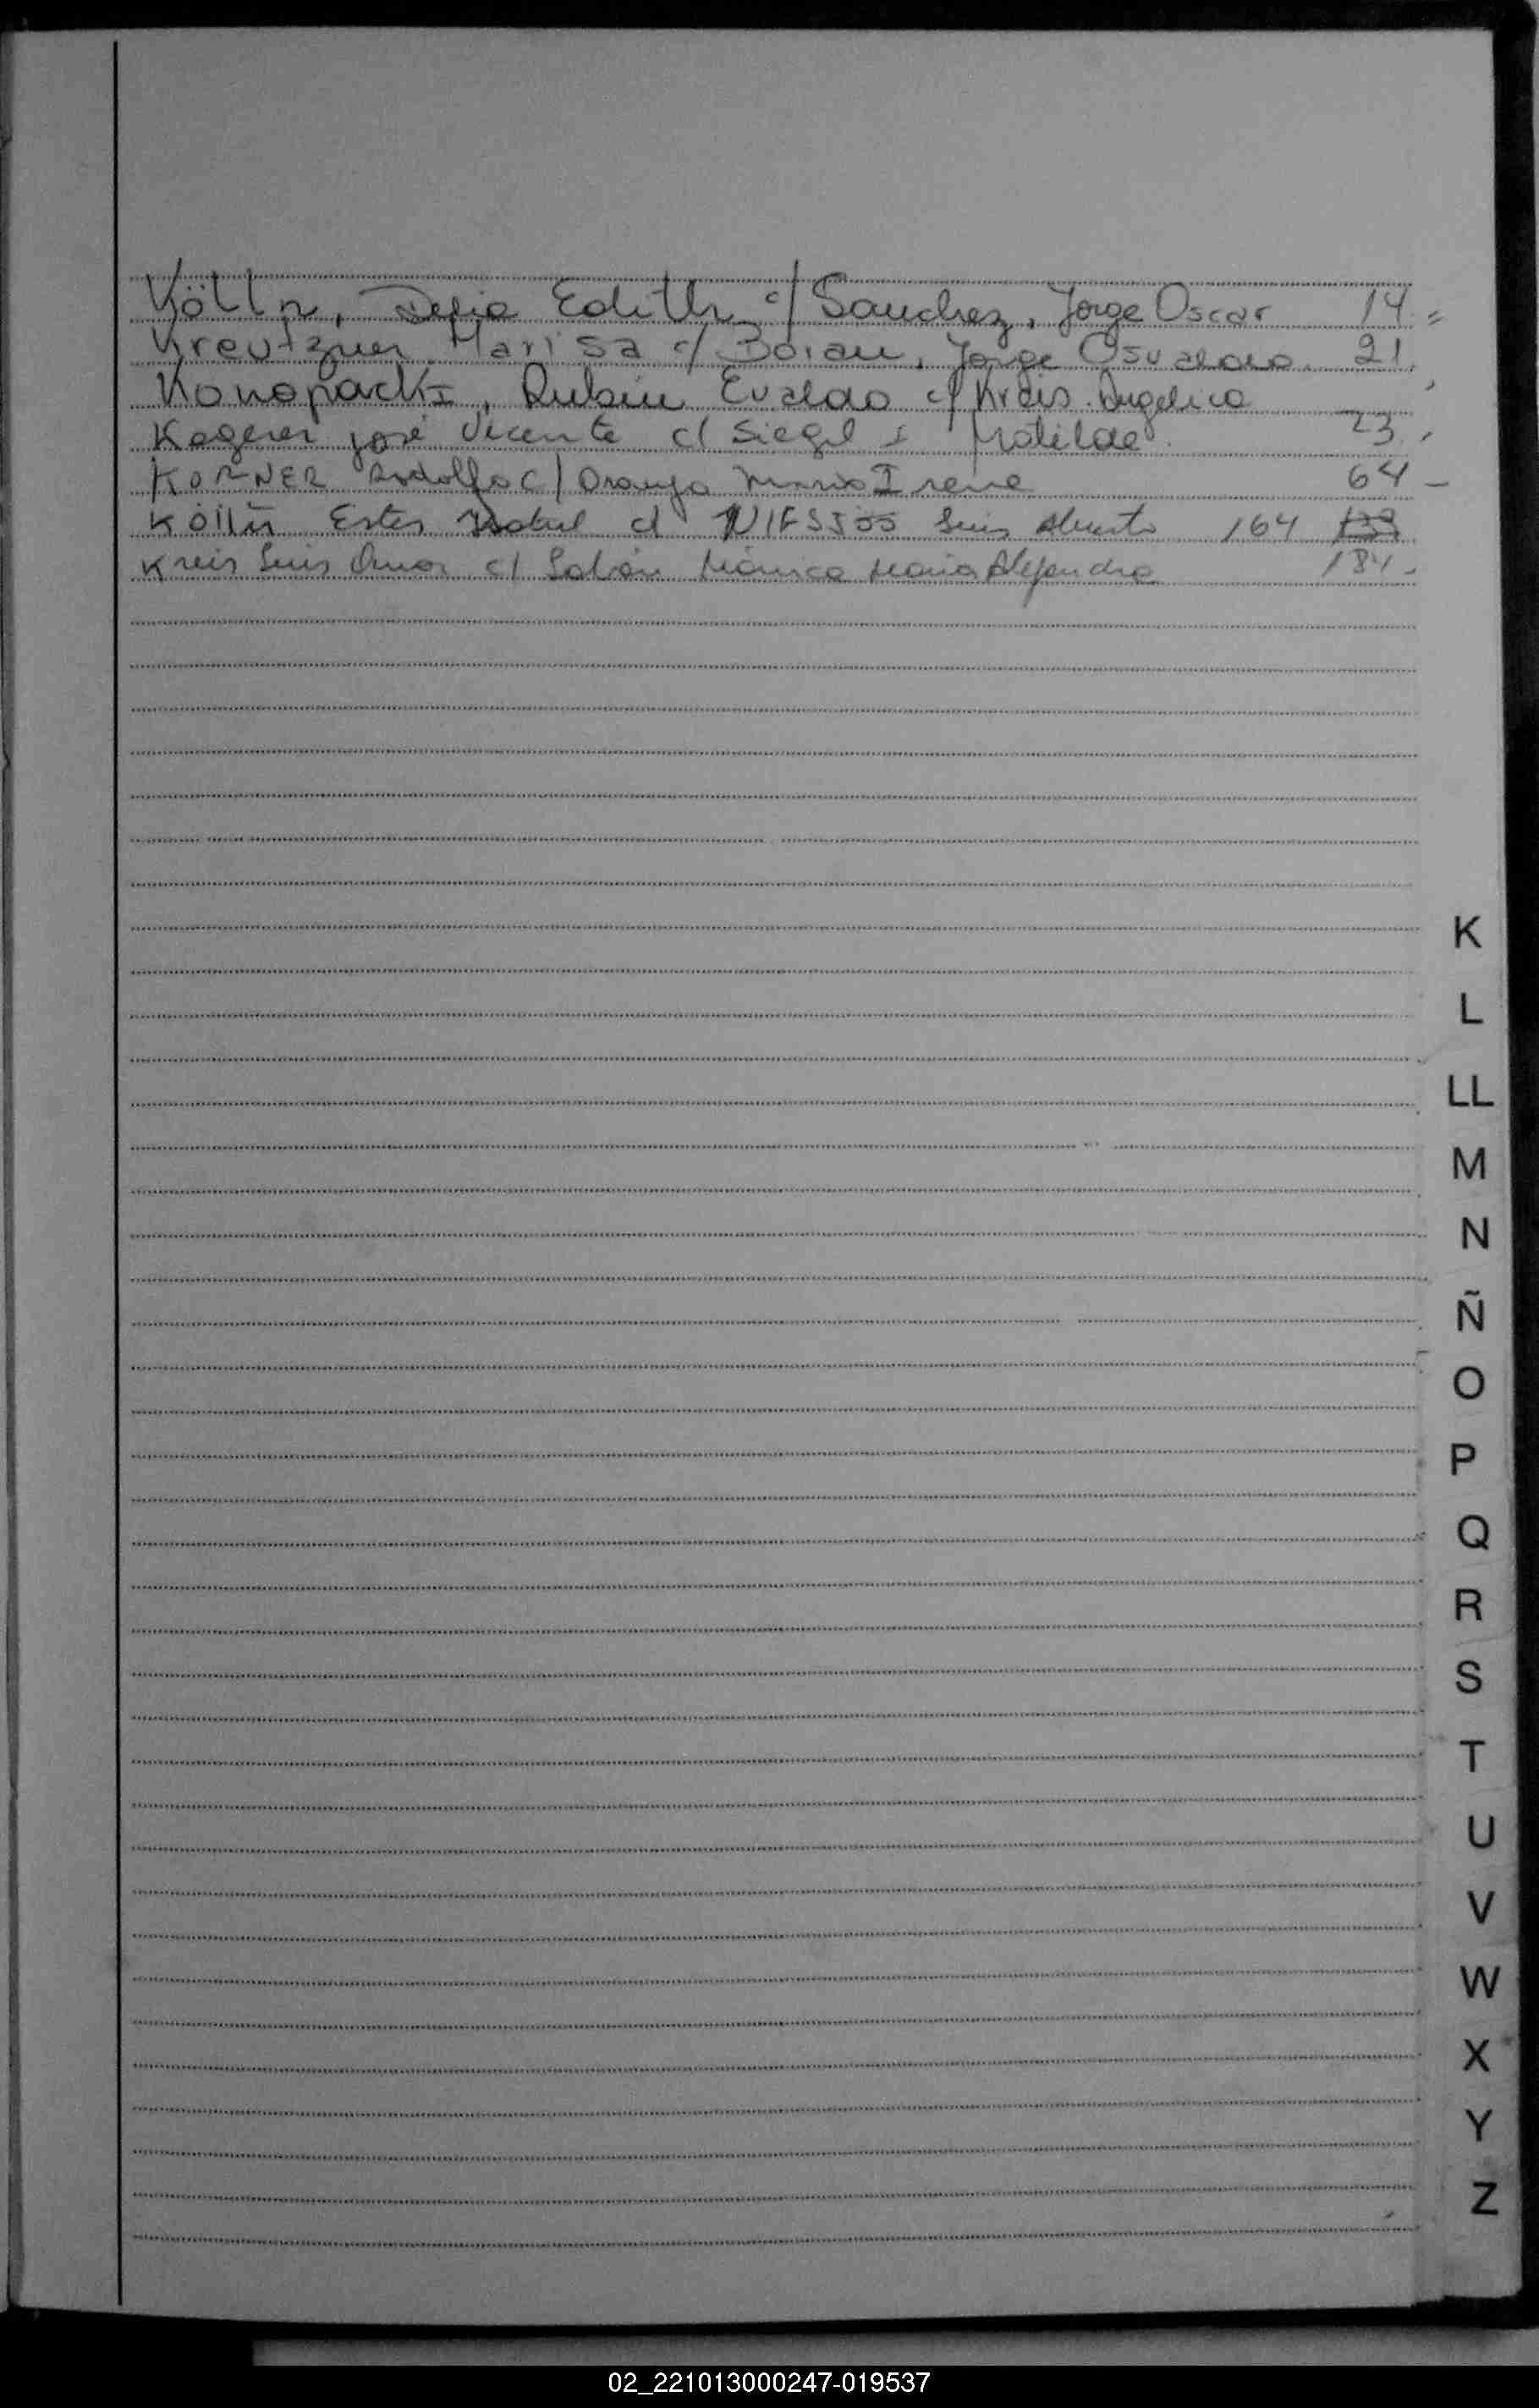 Kölln, Delia Edith c/ Sanchez, Jorge Oscar 14 =
Kreutzner Marisa c/ Boian, Jorge Osvaldo 21
Konopacki, Rubén Evaldo c/ Kreis Angélica
Kagerer José Vicente c/ Siegel Matilde 23
KORNER Rodolfo c/ María Irene 64 -
Kölln Ester Isabel c/ Luis Alberto 164
Kreis Luis Omar c/ Mónica María Alejandra 184 -
K
L
LL
M
N
Ñ
O
P
Q
R
S
T
U
V
W
X
Y
Z
02_221013000247-019537